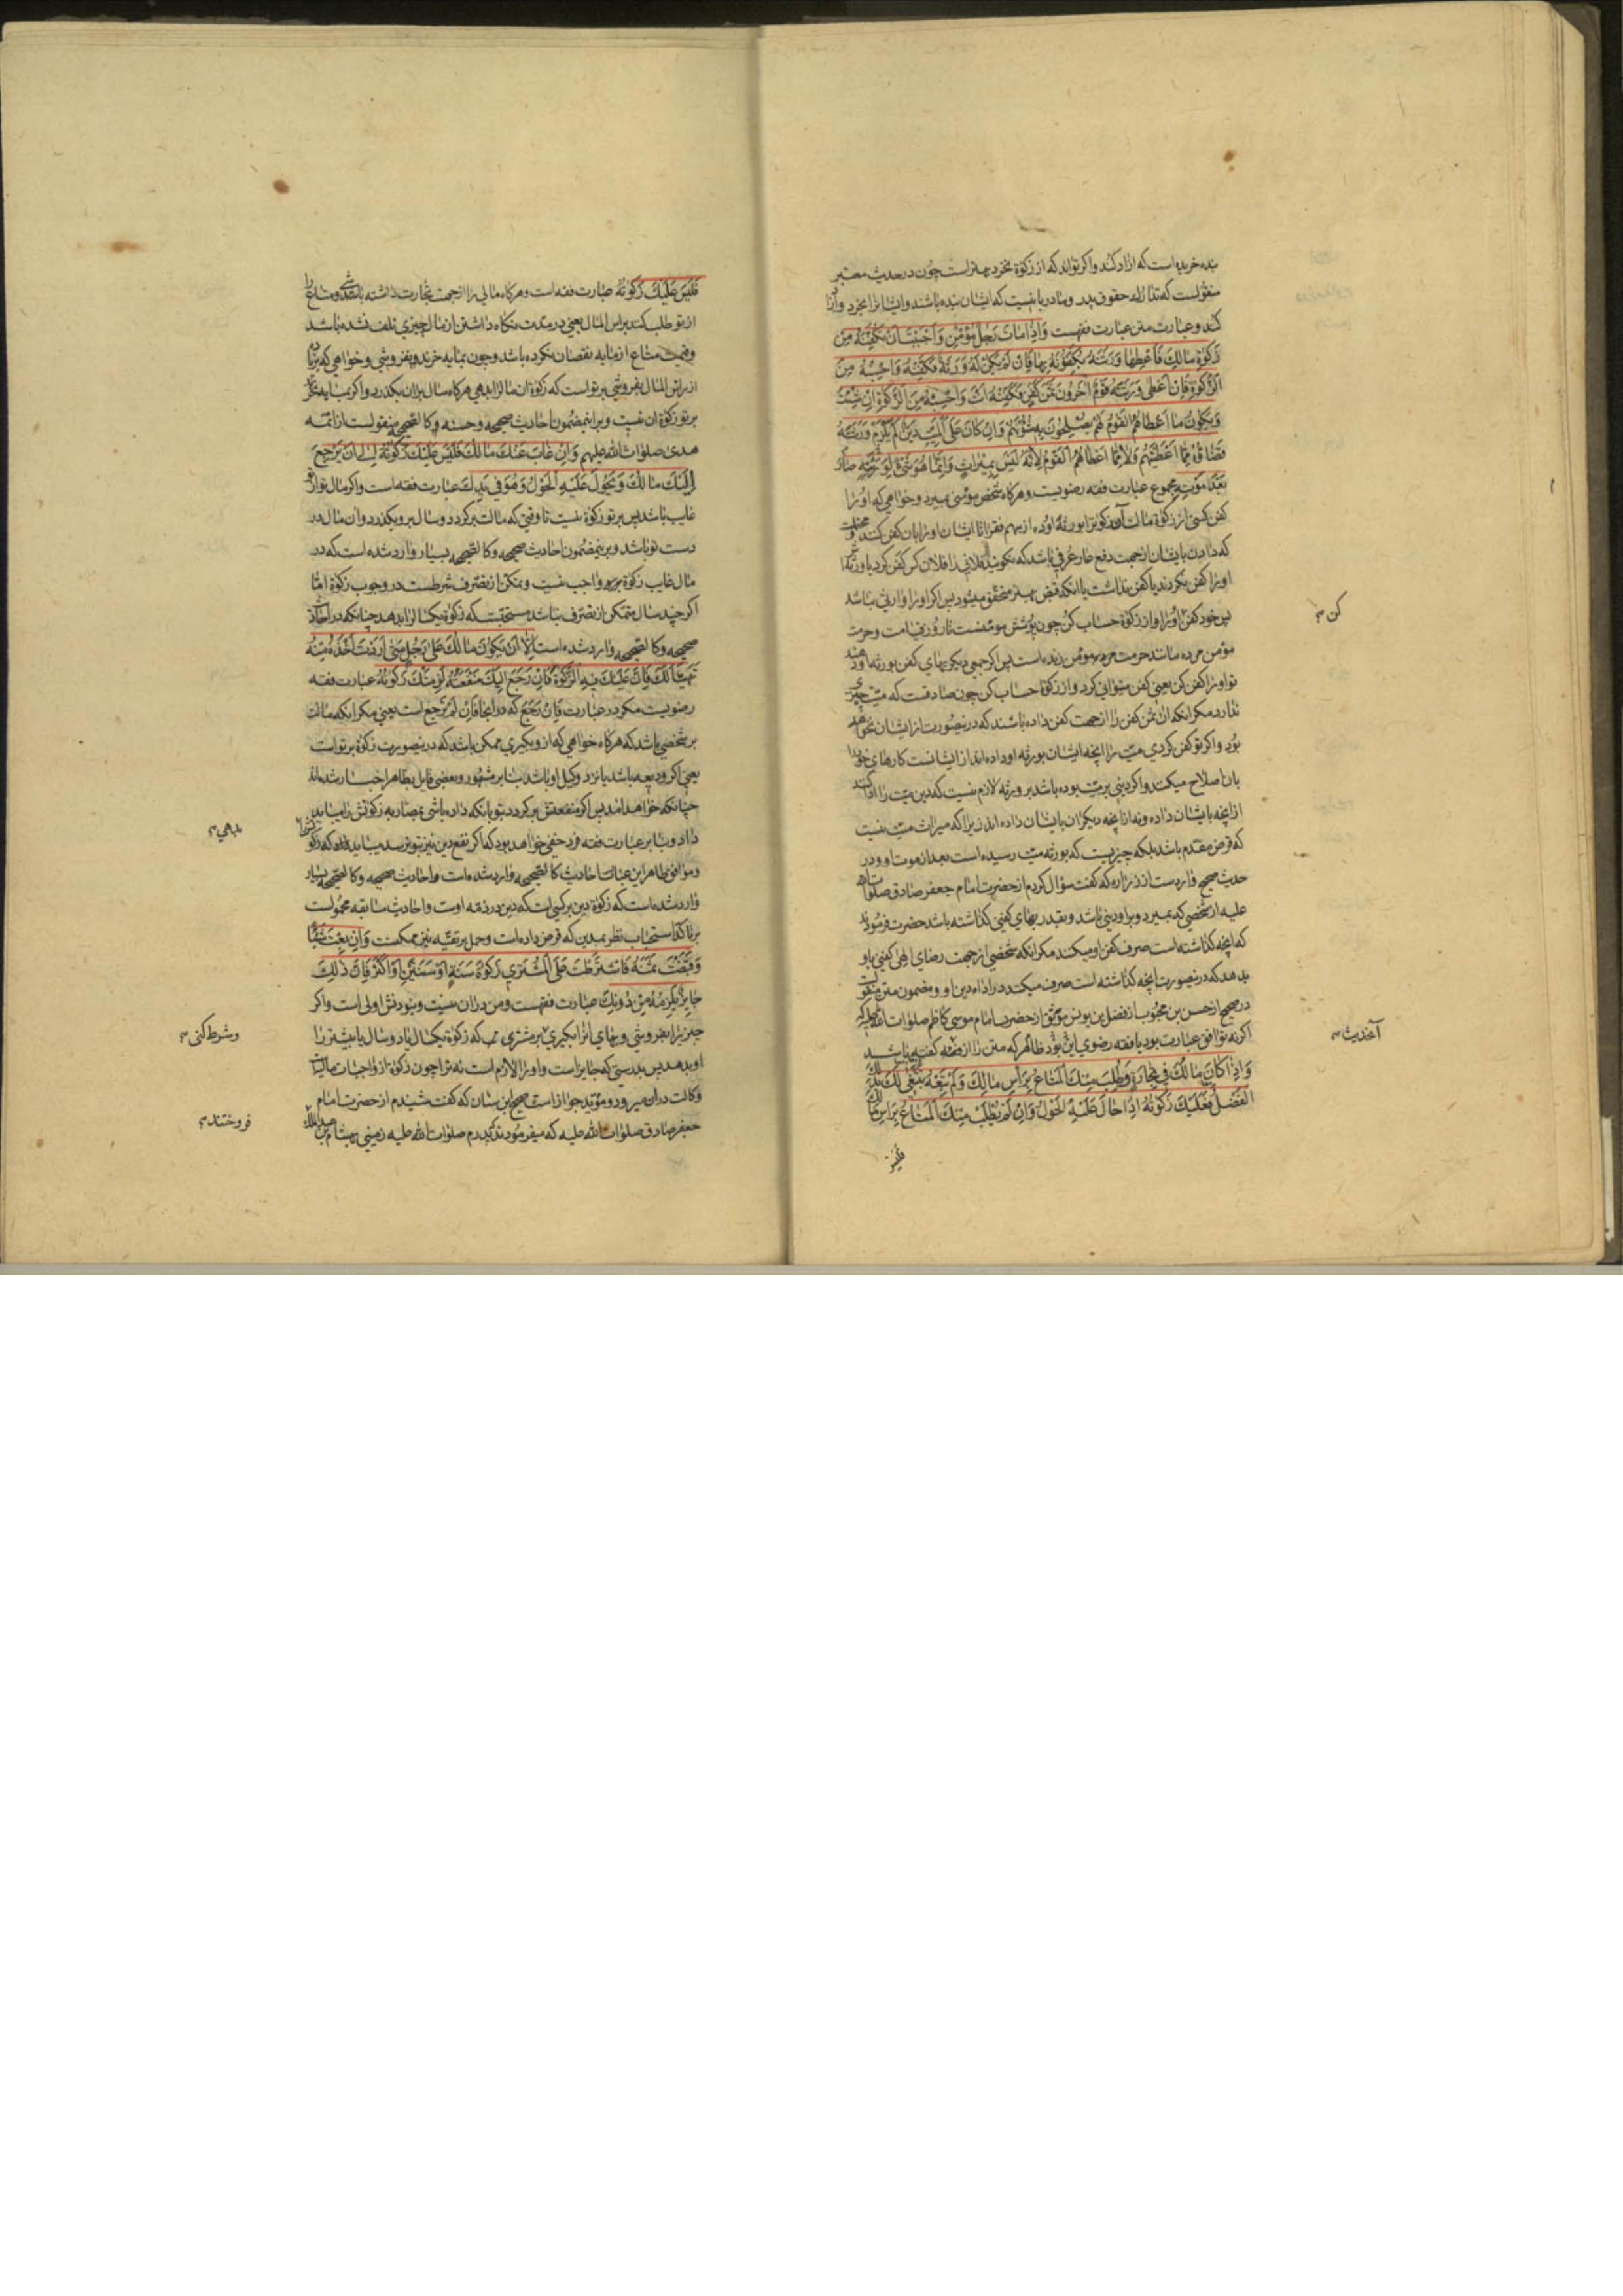 بنده خریده است که ازاد کند و اکر تواند که از زکوة بخرد بهتر است چون در حدیث معتبر
منقولست که تدارك حقوق پدر و مادر باین نیست که ایشان بنده باشند و ایشانرا بخرد و آزاد
کند و عبارت متن عبارت فقهست وَاِذَا مَاتَ رَجُلٌ مُؤْمِنٌ وَاَحْبَبْتَ اَنْ تُكَفِّنَهُ مِنْ
زَكٰوةِ مَالِكَ فَاَعْطِهَا وَرَثَتَهُ يُكَفِّنُونَهُ بِهَا فَاِنْ لَمْ يَكُنْ لَهُ وَرَثَةٌ فَكَفِّنْهُ وَاحْسِبْهُ مِنَ
الزَّكٰوةِ فَاِنْ اَعْطٰى وَرَثَتَهُ قَوْمٌ اٰخَرُونَ ثَمَنَ كَفَنٍ فَكَفِّنْهُ اَنْتَ وَاحْسِبْهُ مِنَ الزَّكٰوةِ اِنْ شِئْتَ
وَيَكُونُ مَا اَعْطَاهُمُ الْقَوْمُ لَهُمْ يُصْلِحُونَ بِهِ شُؤُنَهُمْ وَاِنْ كَانَ عَلَى الْمَيِّتِ دَيْنٌ لَمْ يَلْزَمْ وَرَثَتَهُ
قَضَاؤُهُ مِمَّا اَعْطَيْتَهُمْ وَلَا مِمَّا اَعْطَاهُمُ الْقَوْمُ لِاَنَّهُ لَيْسَ بِمِيرَاثٍ وَاِنَّمَا هُوَ شَيْءٌ لِوَرَثَتِهِ صَارَ
بَعْدَ مَوْتِهِ مجموع عبارت فقه رضویست و هرکاه شخص مؤمنی بمیرد و خواهی که او را
کفن کنی از زکوة مالت آن زکوترا بورثهٔ او ده از سهم فقرا تا ایشان او را بان کفن کنند
که دادن بایشان از جهت دفع عار عرفی باشد که نکویند فلانی را فلان کس کفن کرد یا ورثه
او را کفن نکردند یا کفن نداشت یا انکه قبض بهتر متحقق میشود پس اکر او را وارثی نباشد
پس خود کفن او را و از زکوة حساب کن چون پوشش مؤمنست تا روز قیامت و حرمت
مؤمن مرده مانند حرمت مؤمن زنده است پس اکر جمعی دیکر بهای کفن بورثه او دهند
تو او را کفن کن یعنی کفن میتوانی کرد و از زکوة حساب کن چون صادقست که میّت چیزی
ندارد مکر انکه ان ثمن کفن را از جهت کفن داده باشند که درینصورت از ایشان نخواهد
بود و اکر تو کفن کردی میّت را انچه ایشان بورثه او داده اند از ایشانست کارهای خود را
بان اصلاح میکنند و اکر دینی بر میّت بوده باشد بر ورثه لازم نیست که دین میّت را ادا کنند
از انچه بایشان داده و نه از انچه دیکران بایشان داده اند زیرا که میراث میّت نیست
که قرض مقدم باشد بلکه چیزیست که بورثه میّت رسیده است بعد از موت او و در
حدیث صحیح وارد است از زراره که کفت سؤال کردم از حضرت امام جعفر صادق صلوات الله
علیه از شخصی که بمیرد و بر او دینی باشد و بقدر بهای کفنی کذاشته باشد حضرت فرمودند
که انچه کذاشته است صرف کفن او میکنند مکر انکه شخصی از جهت رضای الهی کفنی باو
بدهد که درینصورت انچه کذاشته است صرف میکنند در اداء دین او و مضمون متن منقولست
در صحیح از حسن بن محبوب از فضل بن یونس موثّق از حضرت امام موسی کاظم صلوات الله علیه که
اکر نه توافق عبارت بود با فقه رضوی این بود ظاهر که متن را از فقه کفته باشد
وَاِذَا كَانَ مَالُكَ فِي تِجَارَةٍ وَطُلِبَ مِنْكَ الْمَتَاعُ بِرَأْسِ مَالِكَ وَلَمْ تَبِعْهُ تَبْتَغِي بِذٰلِكَ
الْفَضْلَ فَعَلَيْكَ زَكٰوتُهُ اِذَا حَالَ عَلَيْهِ الْحَوْلُ وَاِنْ لَمْ يُطْلَبْ مِنْكَ الْمَتَاعُ بِرَأْسِ مَالِكَ
فلیس
کن م
آنحدیث م
فَلَيْسَ عَلَيْكَ زَكٰوتُهُ عبارت فقه است و هرکاه مالی را از جهت تجارت داشته باشی و متاع را
از تو طلب کنند براس المال یعنی در مدت نکاه داشتن از مال چیزی تلف نشده باشد
و قیمت متاع از مایه نقصان نکرده باشد و چون بمایه خرند و نفروشی و خواهی که بزیاده
از راس المال بفروشی بر تو است که زکوة ان مال را بدهی هرکاه سال بران بکذرد و اکر بمایه نخرند
بر تو زکوة ان نیست و بر اینمضمون احادیث صحیحه و حسنه و کالصحیحه منقولست از ائمه
هدی صلوات الله علیهم وَاِنْ غَابَ عَنْكَ مَالُكَ فَلَيْسَ عَلَيْكَ زَكٰوتُهُ اِلٰى اَنْ يَرْجِعَ
اِلَيْكَ مَالُكَ وَيَحُولَ عَلَيْهِ الْحَوْلُ وَهُوَ فِي يَدِكَ عبارت فقه است و اکر مال تو از تو
غایب باشد پس بر تو زکوة نیست تا وقتی که مالت برکردد و سال برو بکذرد و ان مال در
دست تو باشد و برینمضمون احادیث صحیحه و کالصحیحه بسیار وارد شده است که در
مال غایب زکوة واجب نیست و تمکن از تصرف شرطست در وجوب زکوة امّا
اکر چند سال متمکن از تصرف نباشد مستحبست که زکوة یکسال را بدهد چنانکه در احادیث
صحیحه و کالصحیحه وارد شده است اِلَّا اَنْ يَكُونَ مَالُكَ عَلٰى رَجُلٍ مَتٰى اَرَدْتَ اَخْذَهُ مِنْهُ
تَهَيَّأَ لَكَ فَاِنَّ عَلَيْكَ فِيهِ الزَّكٰوةَ فَاِنْ رَجَعَ اِلَيْكَ مَنْفَعَتُهُ لَزِمَتْكَ زَكٰوتُهُ عبارت فقه
رضویست مکر در عبارت فَاِنْ رَجَعَ که در انجا فَاِنْ لَمْ تَرْجِع است یعنی مکر انکه مالت
بر شخصی باشد که هرکاه خواهی که از و بکیری ممکن باشد که درینصورت زکوة بر تو است
یعنی اکر ودیعه باشد یا نزد وکیل او باشد بنا بر مشهور و بعضی قایل بظاهر اخبار شده اند
چنانکه خواهد امد پس اکر منفعتش برکردد بتو بانکه داده باشی بمضاربه زکوتش را میباید
داد و بنا بر عبارت فقه فرد خفی خواهد بود که اکر نفع دین نیز بتو نرسد میباید که زکوتش را
و موافق ظاهر این عبارت احادیث کالصحیحه وارد شده است و احادیث صحیحه و کالصحیحه بسیار
وارد شده است که زکوة دین بر کسی است که دین در ذمه اوست و احادیث سابقه محمولست
بر تاکد استحباب نظر بمدین که قرض داده است و حمل بر تقیّه نیز ممکنست وَاِنْ بِعْتَ شَيْئًا
وَقَبَضْتَ ثَمَنَهُ فَاشْتَرَطْتَ عَلَى الْمُشْتَرِي زَكٰوةَ سَنَةٍ اَوْ سَنَتَيْنِ اَوْ اَكْثَرَ فَاِنَّ ذٰلِكَ
جَايِزٌ يَلْزَمُهُ مِنْ دُونِكَ عبارت فقهست و من دران نیست و نبودنش اولی است و اکر
چیزیرا بفروشی و بهای انرا بکیری بر مشتری که زکوة یکسال یا دو سال یا بیشتر را
او بدهد پس بدرستی که جایز است و او را لازم است نه ترا چون زکوة از واجبات مالیست
وکالت دران میرود و مؤیّد جواز است صحیح ابن سنان که کفت شنیدم از حضرت امام
جعفر صادق صلوات الله علیه که میفرمودند که پدرم صلوات الله علیه زمینی بهشام بن عبد الملك
بدهی م
وشرط کنی م
فروختند م